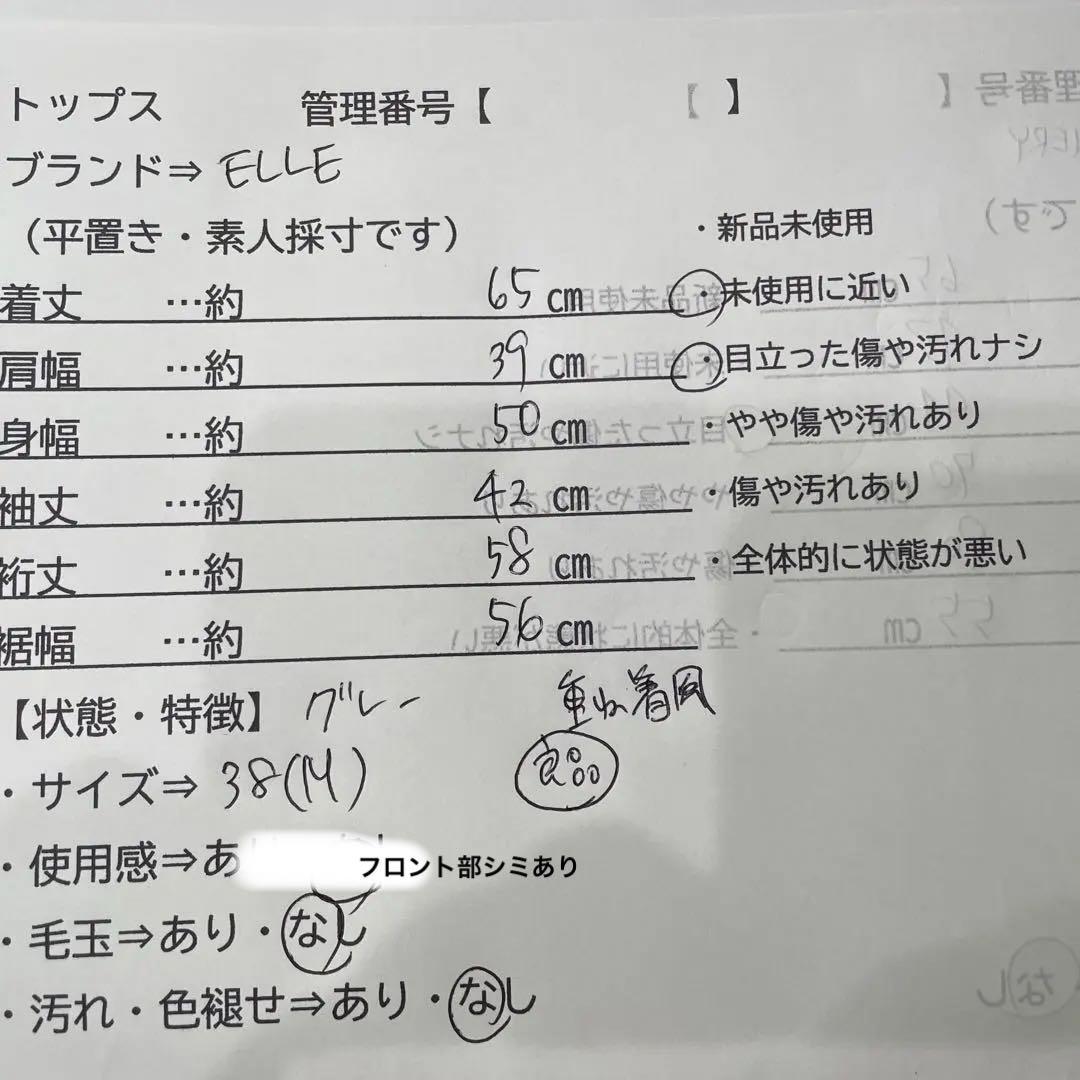 トップス 管理番号【 】
ブランド⇒ ELLE
（平置き・素人採寸です）
・新品未使用
着丈 …約 65 cm
・未使用に近い
肩幅 …約 39 cm
・目立った傷や汚れナシ
身幅 …約 50 cm
・やや傷や汚れあり
袖丈 …約 42 cm
・傷や汚れあり
裄丈 …約 58 cm
・全体的に状態が悪い
裾幅 …約 56 cm
【状態・特徴】 グレー 重ね着風
・サイズ⇒ 38(M) 良品
・使用感⇒あ フロント部シミあり
・毛玉⇒あり・なし
・汚れ・色褪せ⇒あり・なし